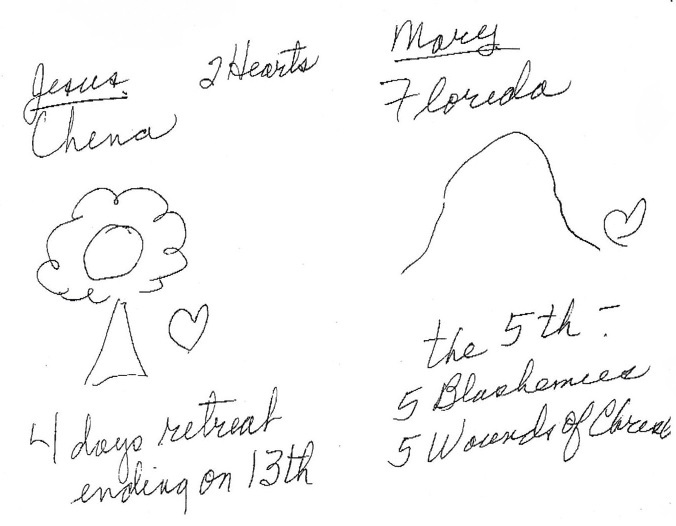 Jesus.
2 Hearts
Chena
4 days retreat
ending on 13th
Mary
Floreda
the 5th -
5 Blashemies
5 Wounds of Chrest